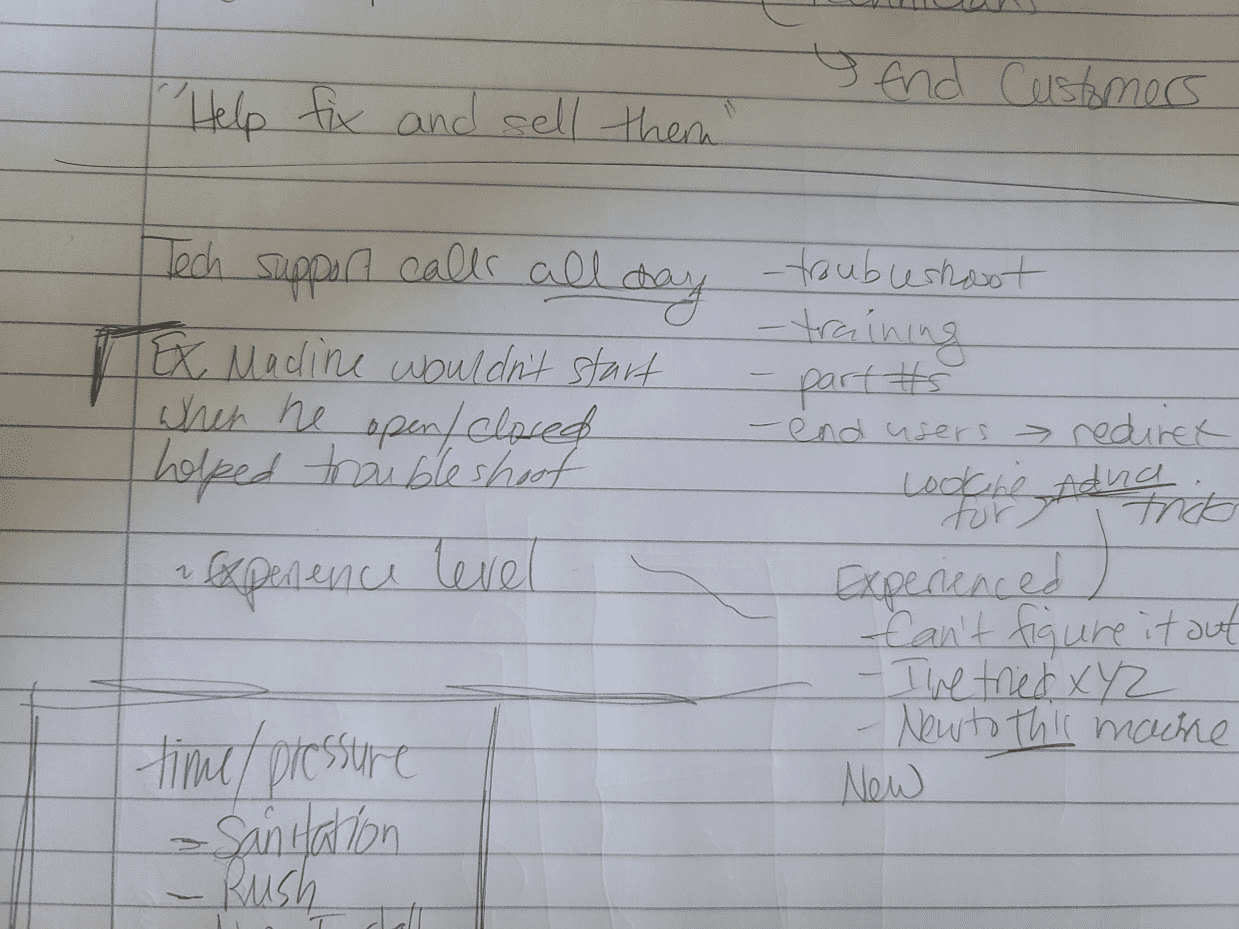 End Customers
"Help fix and sell them"
Tech support calls all day
- troubleshoot
- training
- part #s
- end users → redirect
Looking for Advd. tricks
Ex. Machine wouldn't start
when he open/closed
helped troubleshoot
~ Experience level
Experienced
- Can't figure it out
- I've tried XYZ
- New to this machine
New
time/pressure
- Sanitation
- Rush